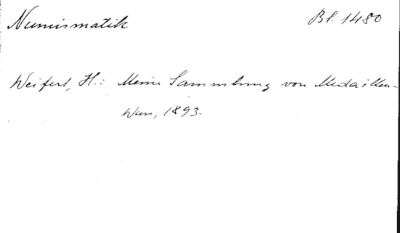 Numismatik
Bl. 1480
Weifert, H.: Meine Sammlung von Medaillen.
Wien, 1893.